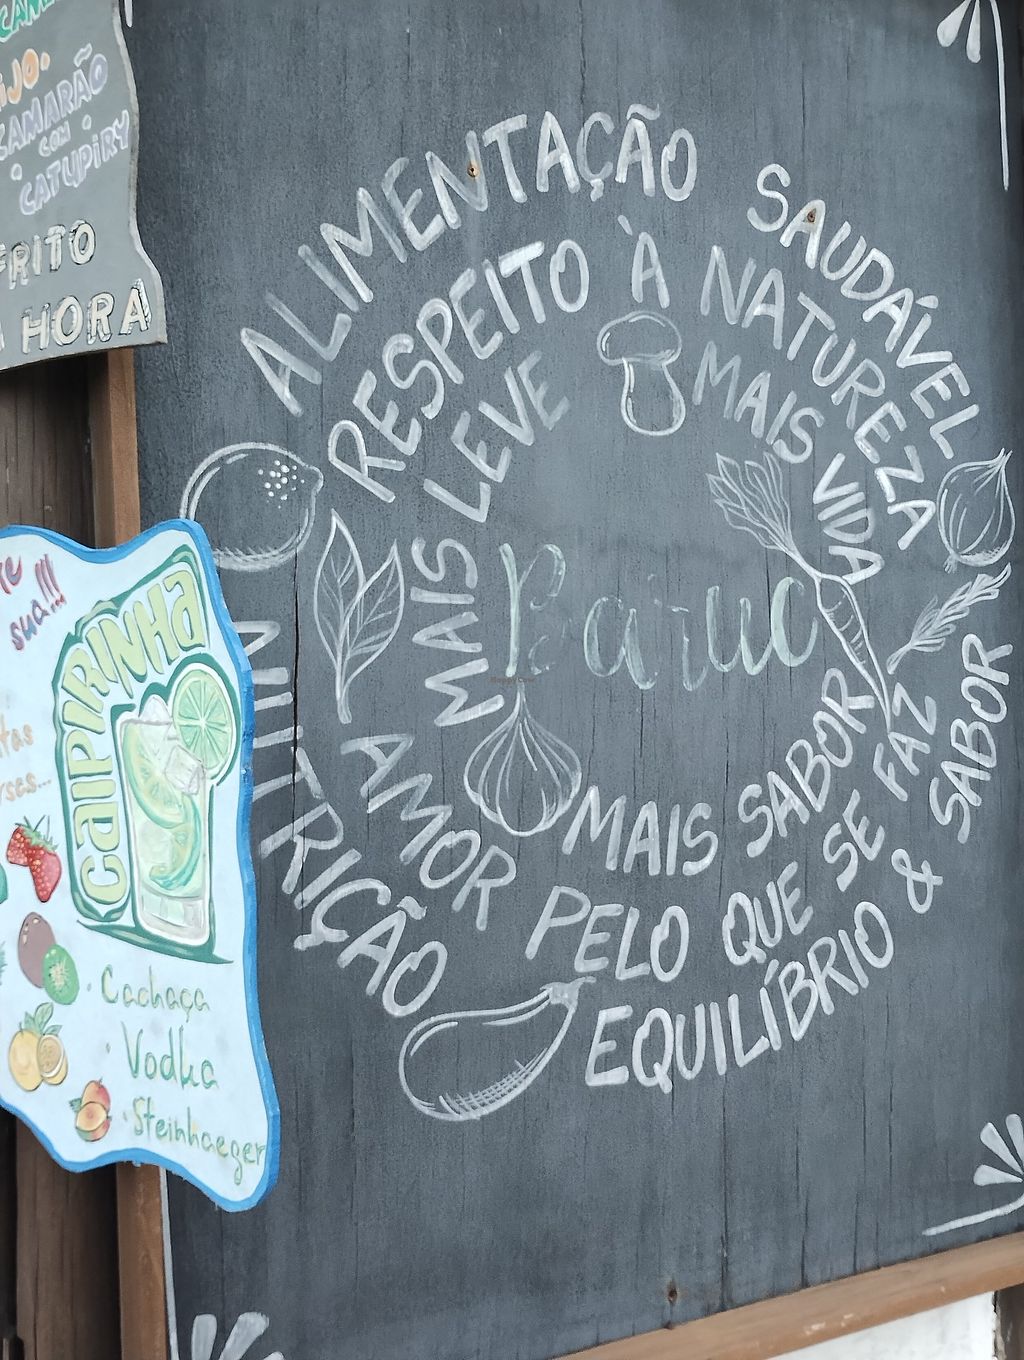 CAMARÃO
COM
CATUPIRY
FRITO
HORA
sua!!!
CAIPIRINHA
Cachaça
Vodka
Steinhaeger
ALIMENTAÇÃO SAUDÁVEL
RESPEITO À NATUREZA
MAIS LEVE
MAIS VIDA
MAIS SABOR
Baruc
AMOR PELO QUE SE FAZ
NUTRIÇÃO
EQUILÍBRIO & SABOR